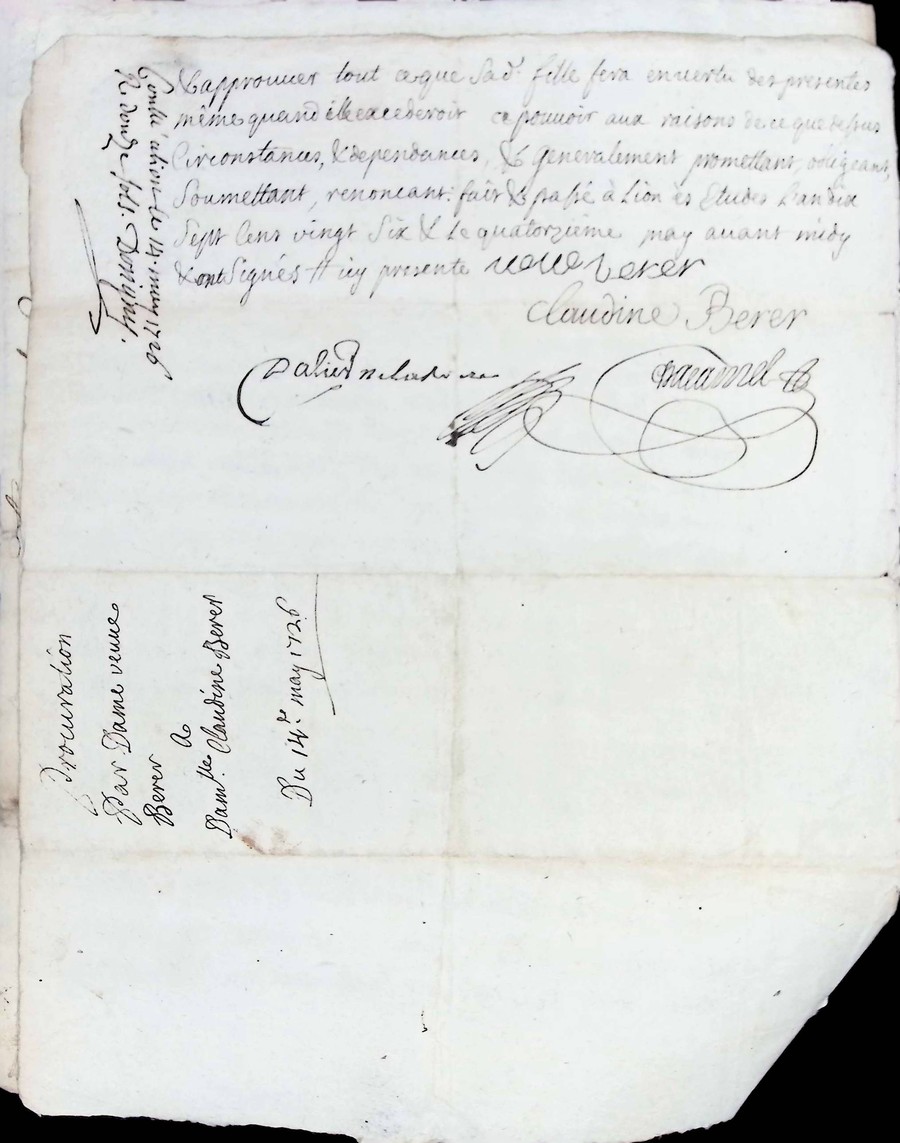 & approuver tout ce que sad. fille fera en vertu des presentes
même quand elle excederoit ce pouvoir aux raisons de ce que dessus
Circonstances, & dependances, & Generalement promettant, obligeant,
Soumettant, renoncant. fait & passé à Lion ès Etudes L'an dix
Sept Cens vingt Six & Le quatorzieme may avant midy
& ont Signés // icy presente veuve berer
Claudine Berer
Dalier
Duamel
Con̄llé a lion le 14 may 1726
R douze sols.
Procuration
Par Dame veuve
Berer
A
Dam.lle Claudine Berer
Du 14.e may 1726